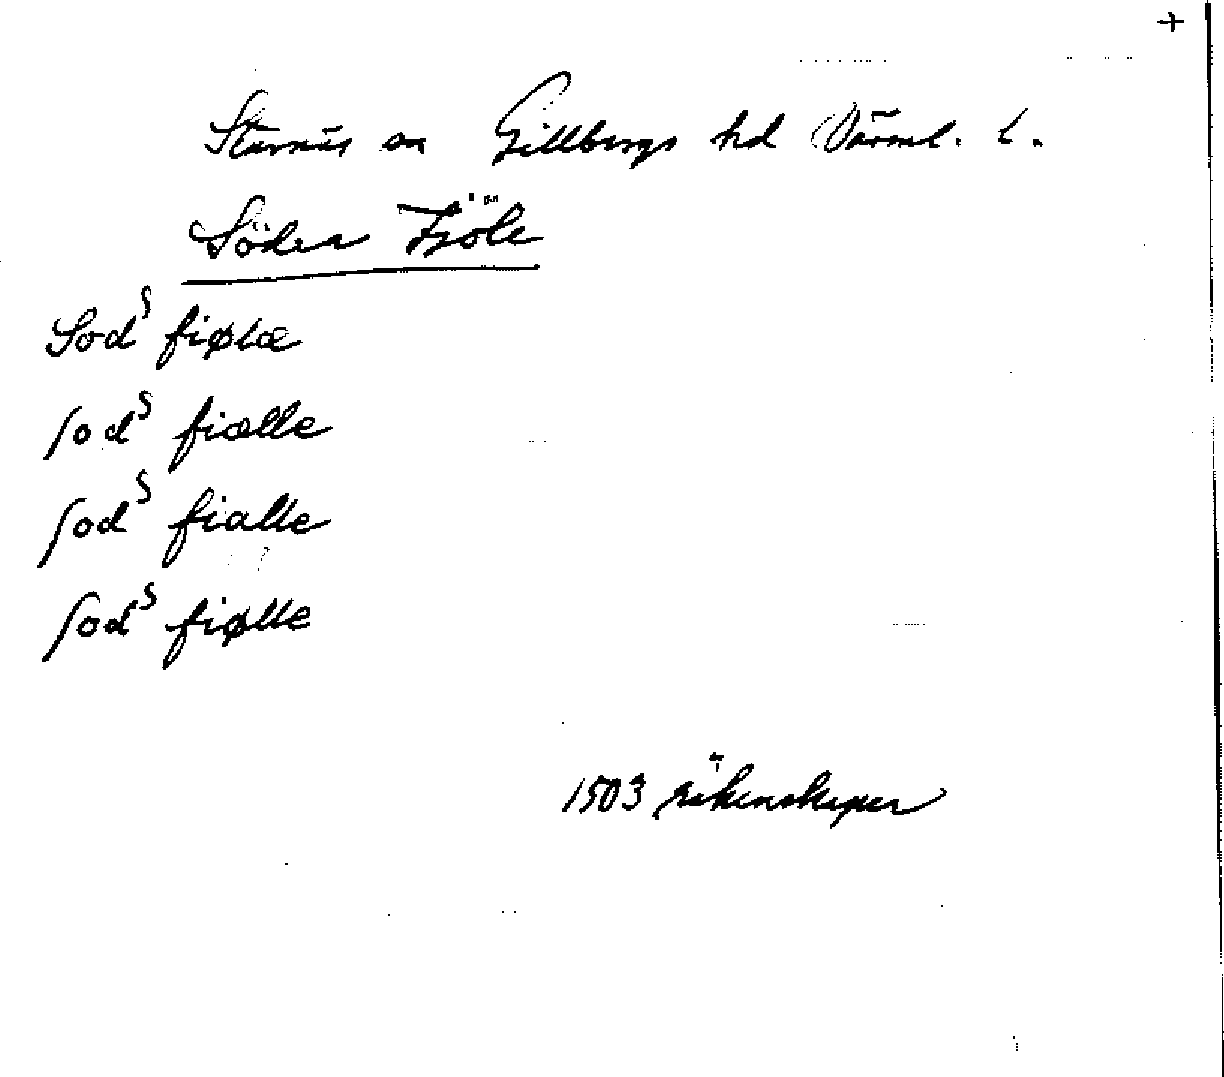 +
Stavnäs sn Gillbergs hd Värml. l.
Söder Fjöle
Sod⸌s⸍ fiølæ
sod⸌s⸍ fiælle
sod⸌s⸍ fialle
sod⸌s⸍ fiølle
1503 räkenskaper